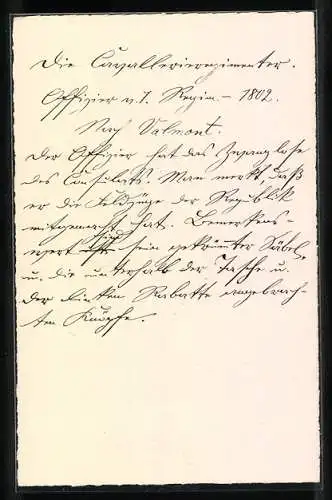 Die Cavallerieregimenter.
Offizier v. 1. Regim. – 1802.
Nach Valmont.
Der Offizier hat das Zwanglose
des Consulats. Man merkt, daß
er die Feldzüge der Republik
mitgemacht hat. Bemerkens-
wert sind sein gekrümter Säbel,
u. die unterhalb der Tasche u.
der linken Rabatte angebrach-
ten Knöpfe.